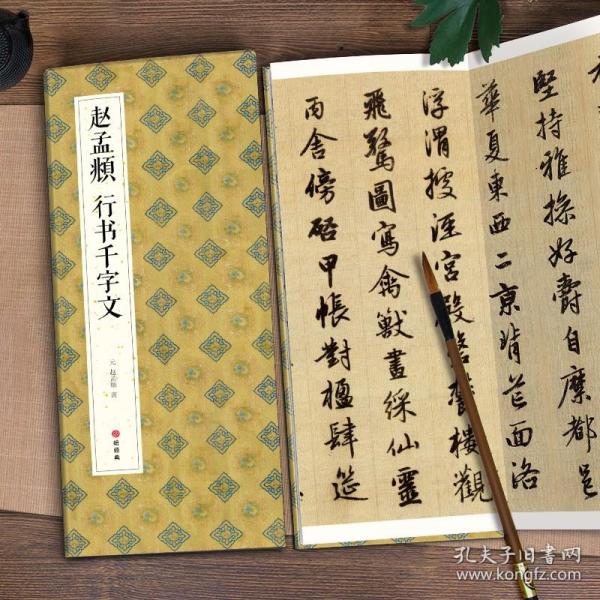 赵孟頫 行书千字文
元 赵孟頫 书
堅持雅操好爵自縻都邑
華夏東西二京背芒面洛
浮渭據涇宮殿盤鬱樓觀
飛驚圖寫禽獸畫綵仙靈
丙舍傍啓甲帳對楹肆筵
孔夫子旧书网
www.kongfz.com